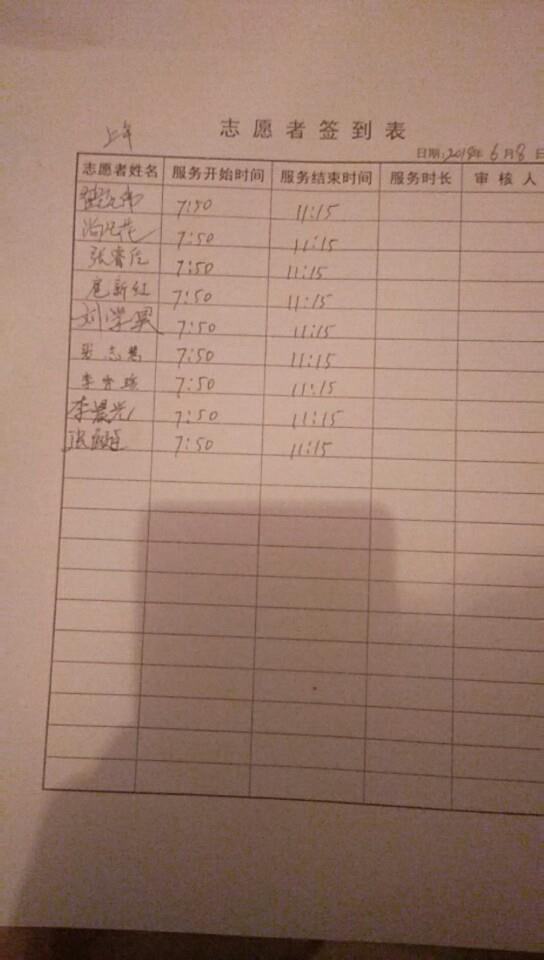 上午
志愿者签到表
日期:2018年6月8日
志愿者姓名 服务开始时间 服务结束时间 服务时长 审核人
7:50 11:15
7:50 11:15
张睿 7:50 11:15
新红 7:50 11:15
刘学 7:50 11:15
志慧 7:50 11:15
李 7:50 11:15
李晨光 7:50 11:15
张 7:50 11:15